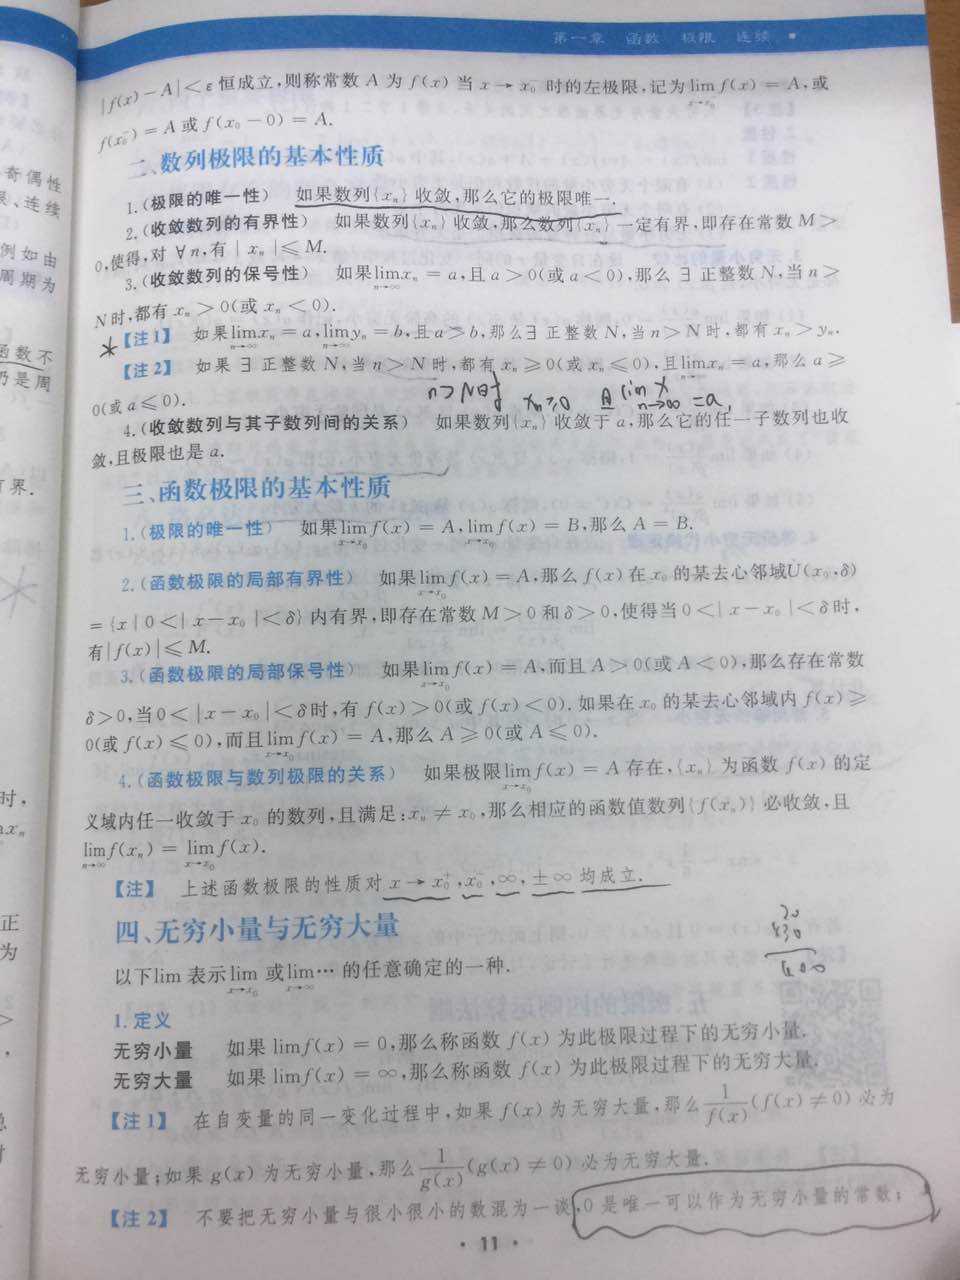 第一章 函数 极限 连续
|f(x)-A|<ε恒成立,则称常数 A 为 f(x) 当 x→x₀⁻ 时的左极限,记为lim_{x→x₀⁻} f(x) = A,或
f(x₀⁻) = A 或 f(x₀-0) = A.
二、数列极限的基本性质
1.(极限的唯一性) 如果数列{xₙ} 收敛,那么它的极限唯一.
2.(收敛数列的有界性) 如果数列{xₙ} 收敛,那么数列{xₙ} 一定有界,即存在常数 M>
0,使得,对 ∀n,有 | xₙ |≤M.
3.(收敛数列的保号性) 如果lim_{n→∞} xₙ = a,且 a>0(或 a<0),那么 ∃ 正整数 N,当 n>
N时,都有 xₙ > 0(或 xₙ < 0).
【注1】 如果lim_{n→∞} xₙ = a,lim_{n→∞} yₙ = b,且a>b,那么∃ 正整数 N,当 n>N 时,都有 xₙ>yₙ.
【注2】 如果 ∃ 正整数 N,当 n>N 时,都有 xₙ≥0(或 xₙ≤0),且lim_{n→∞} xₙ = a,那么 a≥
0(或 a≤0).
n>N时 xₙ≥0 且 lim_{n→∞} x = a,
4.(收敛数列与其子数列间的关系) 如果数列{xₙ}收敛于 a,那么它的任一子数列也收
敛,且极限也是 a.
三、函数极限的基本性质
1.(极限的唯一性) 如果lim_{x→x₀} f(x) = A,lim_{x→x₀} f(x) = B,那么 A = B.
2.(函数极限的局部有界性) 如果lim_{x→x₀} f(x) = A,那么 f(x) 在 x₀ 的某去心邻域U(x₀,δ)
= {x | 0<| x-x₀ |<δ} 内有界,即存在常数 M>0 和 δ>0,使得当 0<| x-x₀ |<δ 时,
有|f(x)|≤M.
3.(函数极限的局部保号性) 如果lim_{x→x₀} f(x) = A,而且 A>0(或 A<0),那么存在常数
δ>0,当 0<|x-x₀|<δ时,有 f(x)>0(或 f(x)<0). 如果在 x₀ 的某去心邻域内 f(x)≥
0(或 f(x)≤0),而且lim_{x→x₀} f(x) = A,那么 A≥0(或 A≤0).
4.(函数极限与数列极限的关系) 如果极限lim_{x→x₀} f(x) = A 存在,{xₙ} 为函数 f(x) 的定
义域内任一收敛于 x₀ 的数列,且满足:xₙ ≠ x₀,那么相应的函数值数列{f(xₙ)} 必收敛,且
lim_{n→∞} f(xₙ) = lim_{x→x₀} f(x).
【注】 上述函数极限的性质对 x→x₀⁺,x₀⁻,∞,±∞ 均成立.
四、无穷小量与无穷大量
以下lim 表示lim_{x→x₀} 或lim_{x→∞}… 的任意确定的一种.
1.定义
无穷小量 如果 limf(x) = 0,那么称函数 f(x) 为此极限过程下的无穷小量.
无穷大量 如果 limf(x) = ∞,那么称函数 f(x) 为此极限过程下的无穷大量.
【注1】 在自变量的同一变化过程中,如果 f(x) 为无穷大量,那么 1/f(x) (f(x) ≠ 0) 必为
无穷小量;如果 g(x) 为无穷小量,那么 1/g(x) (g(x) ≠ 0) 必为无穷大量.
【注2】 不要把无穷小量与很小很小的数混为一谈,0 是唯一可以作为无穷小量的常数;
· 11 ·
奇偶性
、连续
例如由
周期为
函数不
乃是周
界.
时,
xₙ
正
为
>